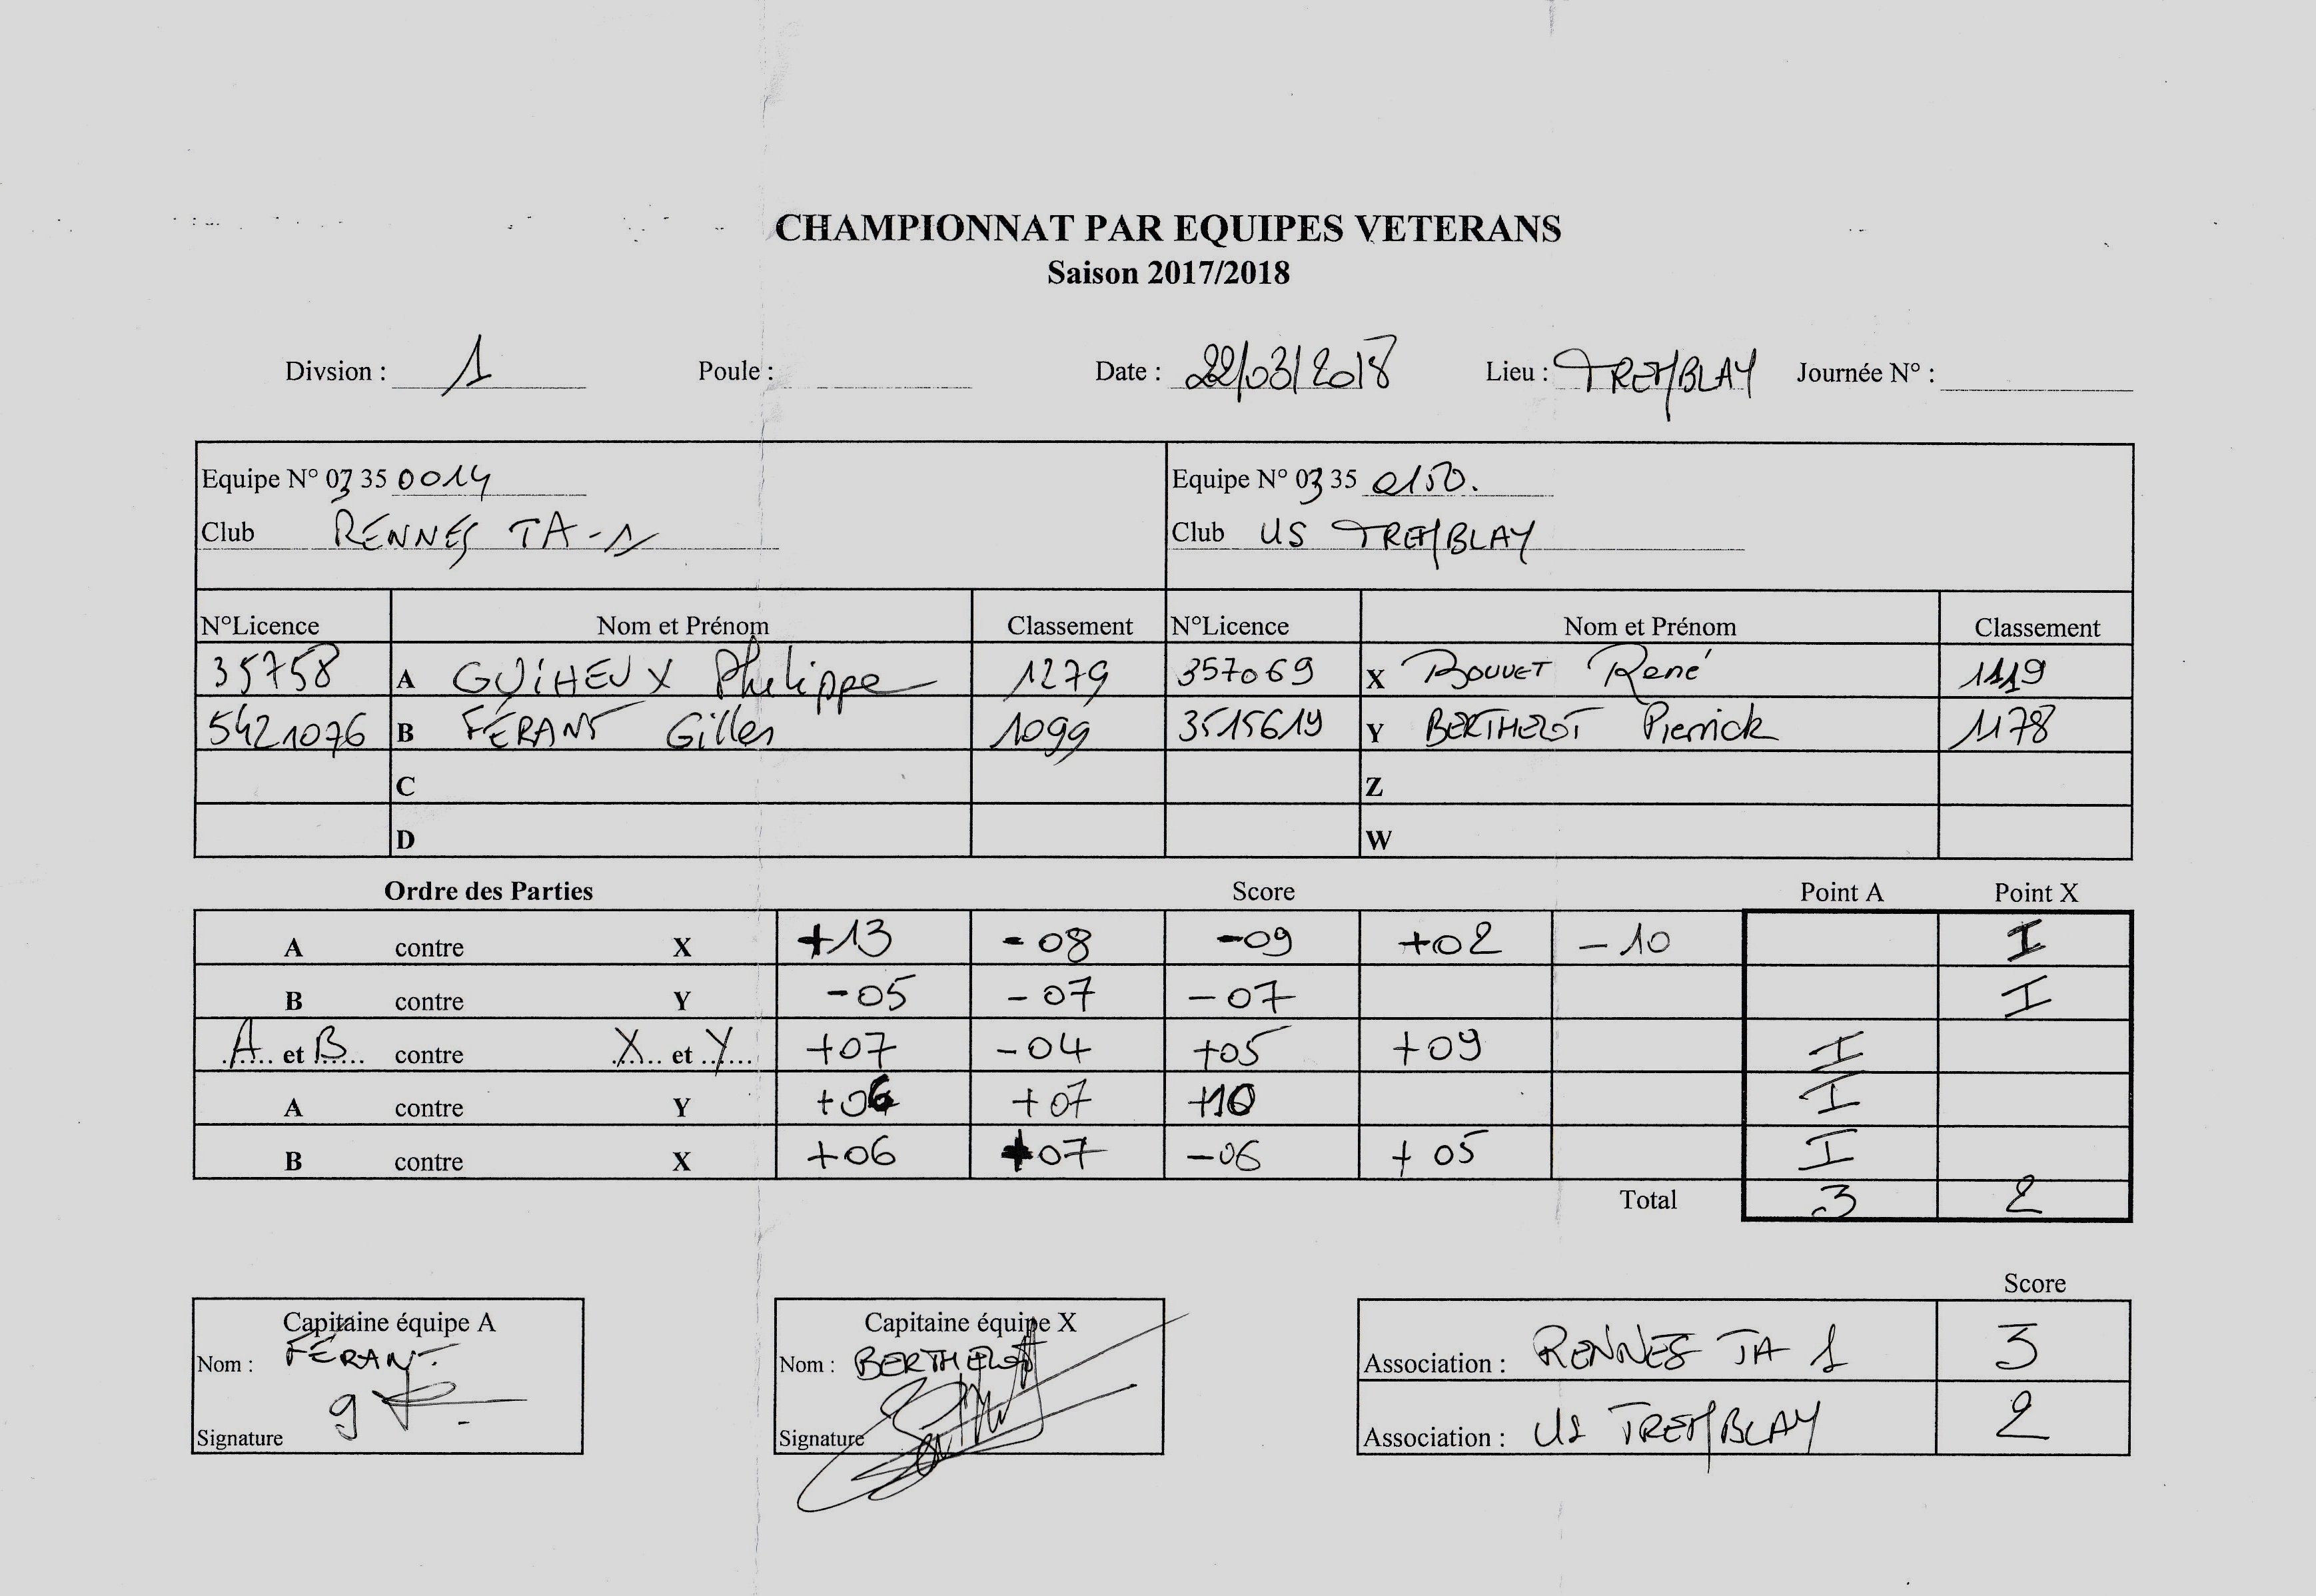 CHAMPIONNAT PAR EQUIPES VETERANS
Saison 2017/2018
Divsion : 1 Poule : Date : 22/03/2018 Lieu : TREMBLAY Journée N° :
Equipe N° 03 35 0014 Equipe N° 03 35 0150.
Club RENNES TA-1 Club US TREMBLAY
N°Licence Nom et Prénom Classement N°Licence Nom et Prénom Classement
35758 A GUIHEUX Philippe 1279 357069 X BOUVET René 1119
5421076 B FÉRANT Gilles 1099 3515619 Y BERTHELOT Pierrick 1178
C Z
D W
Ordre des Parties Score Point A Point X
A contre X +13 -08 -09 +02 -10 I
B contre Y -05 -07 -07 I
A et B contre X et Y +07 -04 +05 +09 I
A contre Y +06 +07 +10 I
B contre X +06 +07 -06 +05 I
Total 3 2
Score
Capitaine équipe A Capitaine équipe X
Nom : FÉRANT Nom : BERTHELOT Association : RENNES TA 1 3
Signature Signature Association : US TREMBLAY 2